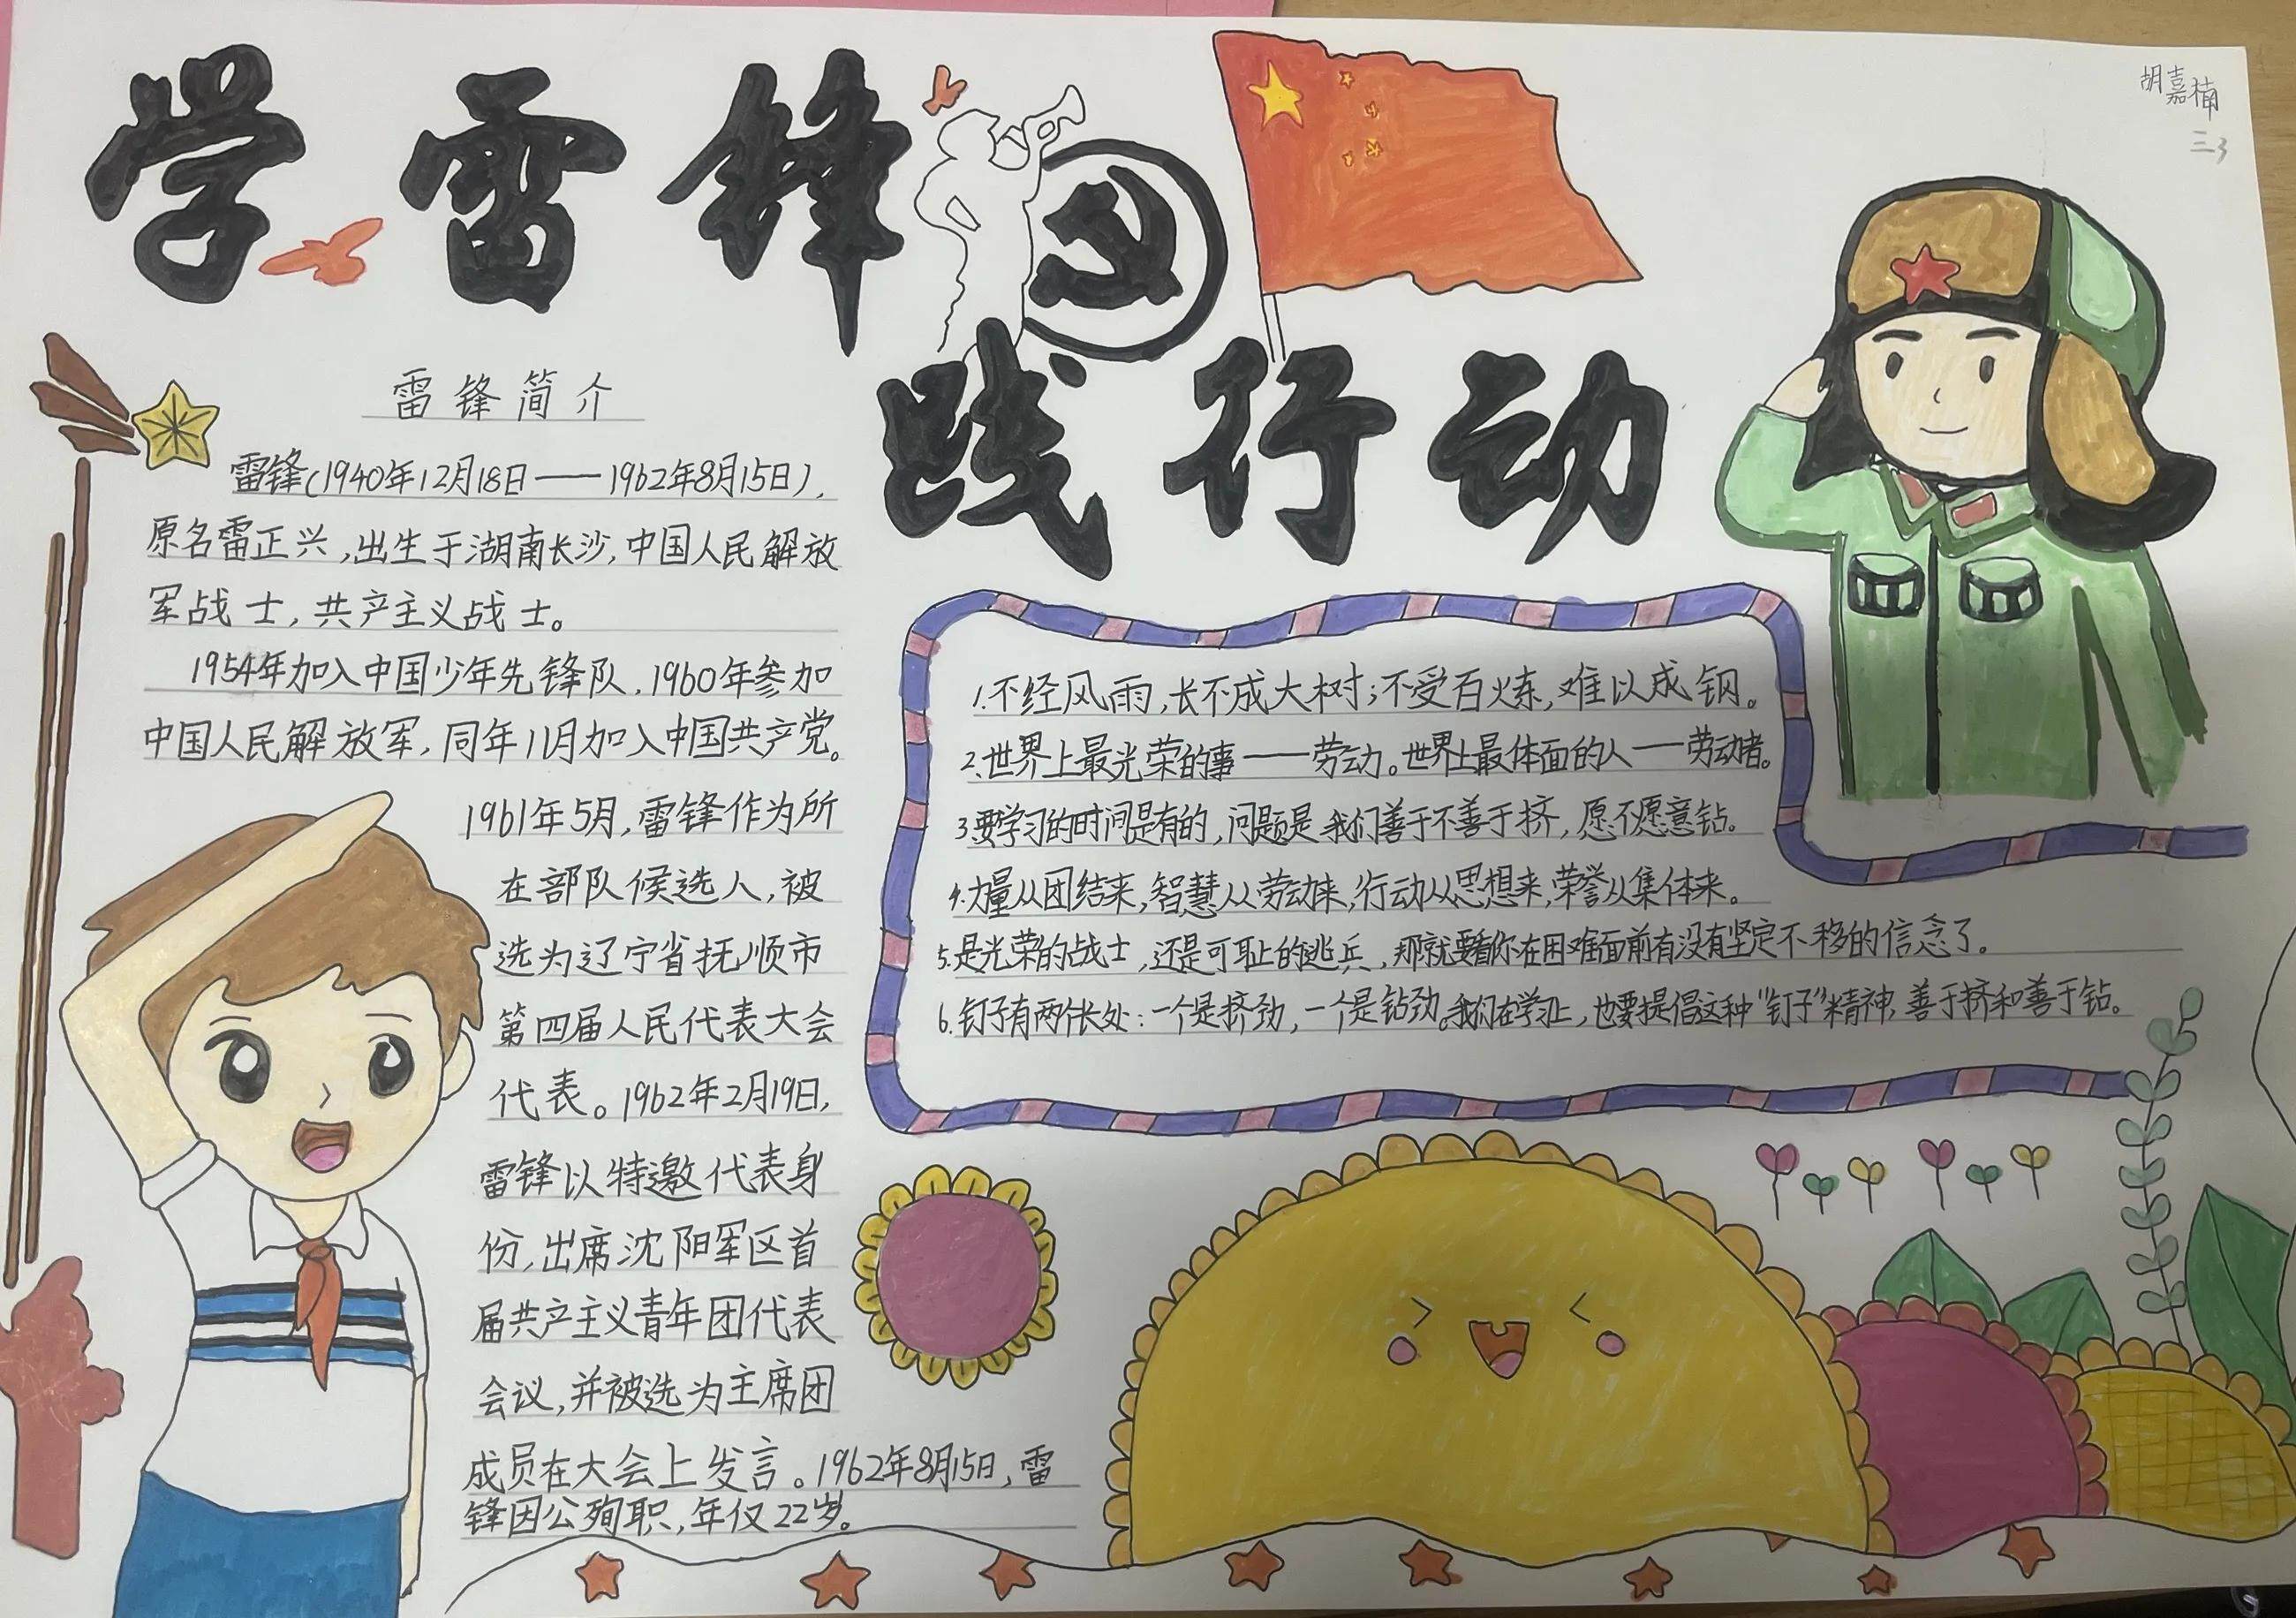 学雷锋
践行动
胡嘉楠
三3
雷锋简介
雷锋(1940年12月18日——1962年8月15日),
原名雷正兴,出生于湖南长沙,中国人民解放
军战士,共产主义战士。
1954年加入中国少年先锋队,1960年参加
中国人民解放军,同年11月加入中国共产党。
1961年5月,雷锋作为所
在部队候选人,被
选为辽宁省抚顺市
第四届人民代表大会
代表。1962年2月19日,
雷锋以特邀代表身
份,出席沈阳军区首
届共产主义青年团代表
会议,并被选为主席团
成员在大会上发言。1962年8月15日,雷
锋因公殉职,年仅22岁。
1.不经风雨,长不成大树;不受百炼,难以成钢。
2.世界上最光荣的事——劳动。世界上最体面的人——劳动者。
3.要学习的时间是有的,问题是我们善于不善于挤,愿不愿意钻。
4.力量从团结来,智慧从劳动来,行动从思想来,荣誉从集体来。
5.是光荣的战士,还是可耻的逃兵,那就要看你在困难面前有没有坚定不移的信念了。
6.钉子有两个长处:一个是挤劲,一个是钻劲。我们在学习上,也要提倡这种“钉子”精神,善于挤和善于钻。